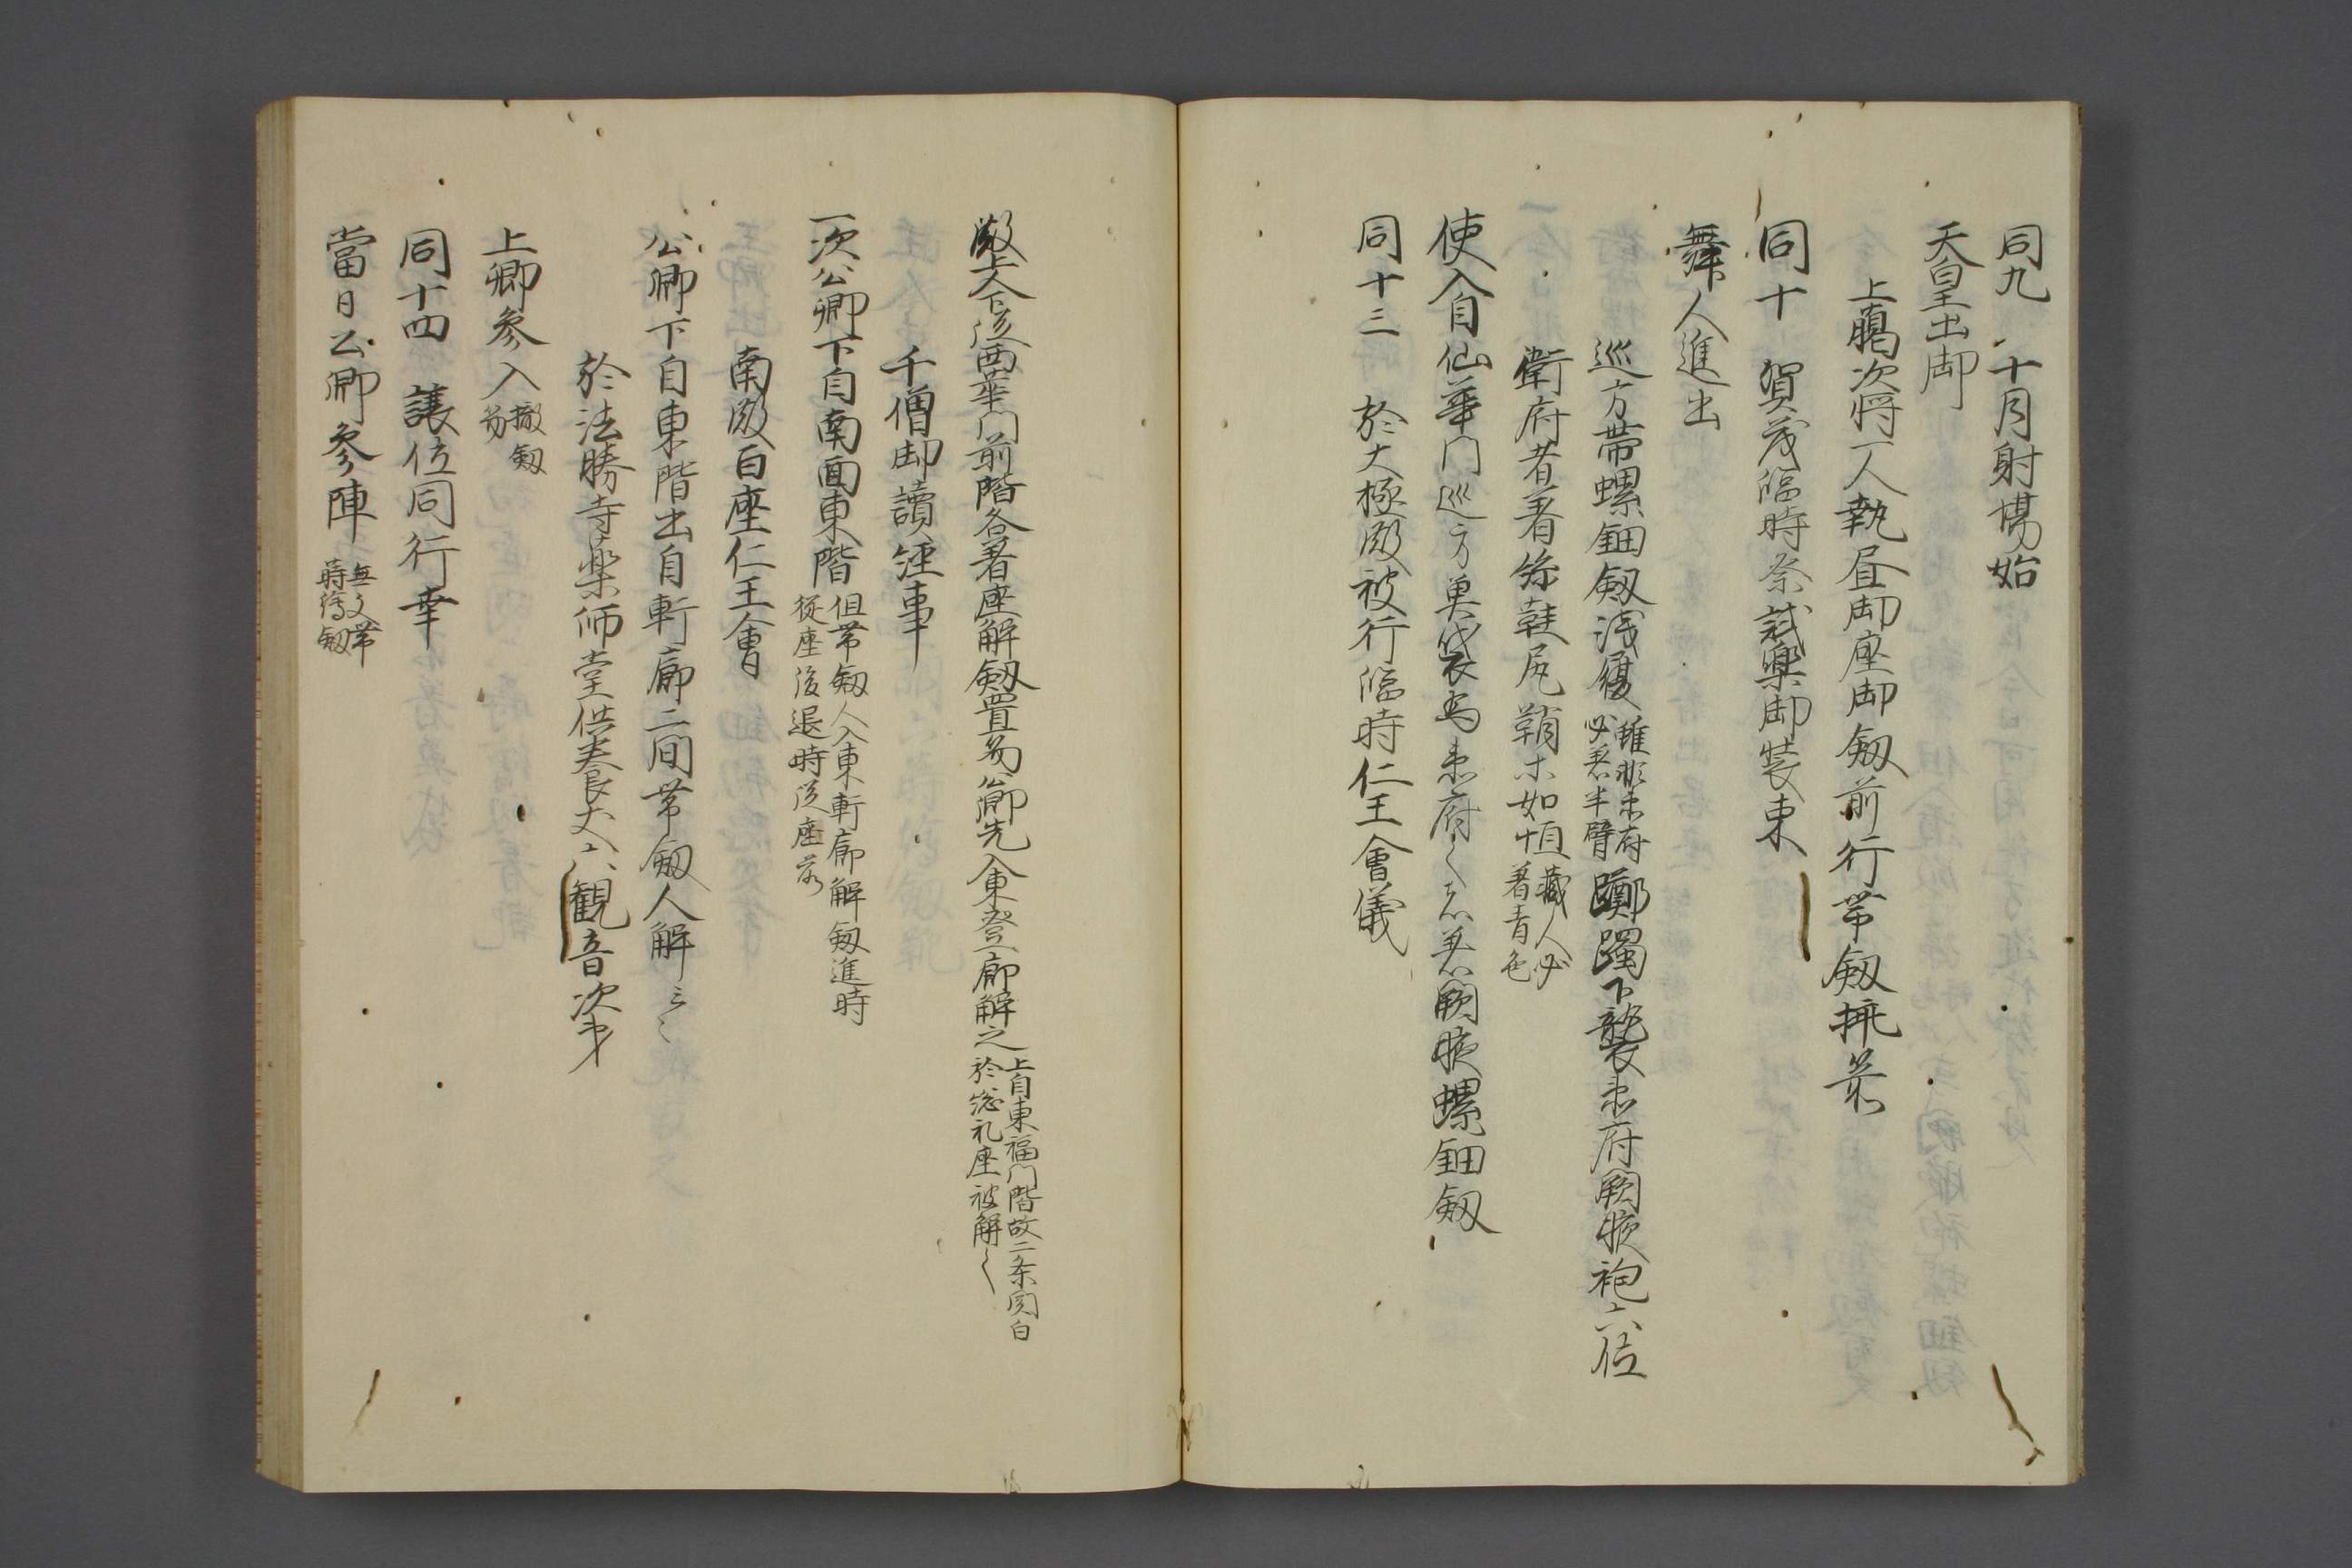 同九　十月射場始
天皇出御
上臈次将一人執昼御座御釼前行帯釼挿笏
同十　賀茂臨時祭試樂御装束
舞人進出
巡方帯螺鈿釼浅履雖非衛府必着半臂躑躅下襲衛府闕腋袍六位
衛府者著絲鞋尻鞘等如恒蔵人必著青色
使入自仙華門巡方魚袋為衛府者着闕腋螺鈿釼
同十三　於大極殿被行臨時仁王會儀
殿上人下従西華門前階各著座解釼置笏公卿先入東登廊解之上自東福門階故二条関白於惣礼座被解之
千僧御讀経事
一次公卿下自南面東階但帯釼人入東軒廊解釼進時従座後退時従座前
南殿百座仁王會
公卿下自東階出自軒廊二間帯釼人解之
於法勝寺薬師堂供養丈六観音次第
上卿参入撤釼笏
同十四　譲位同行幸
當日公卿参陣無文帯蒔絵釼